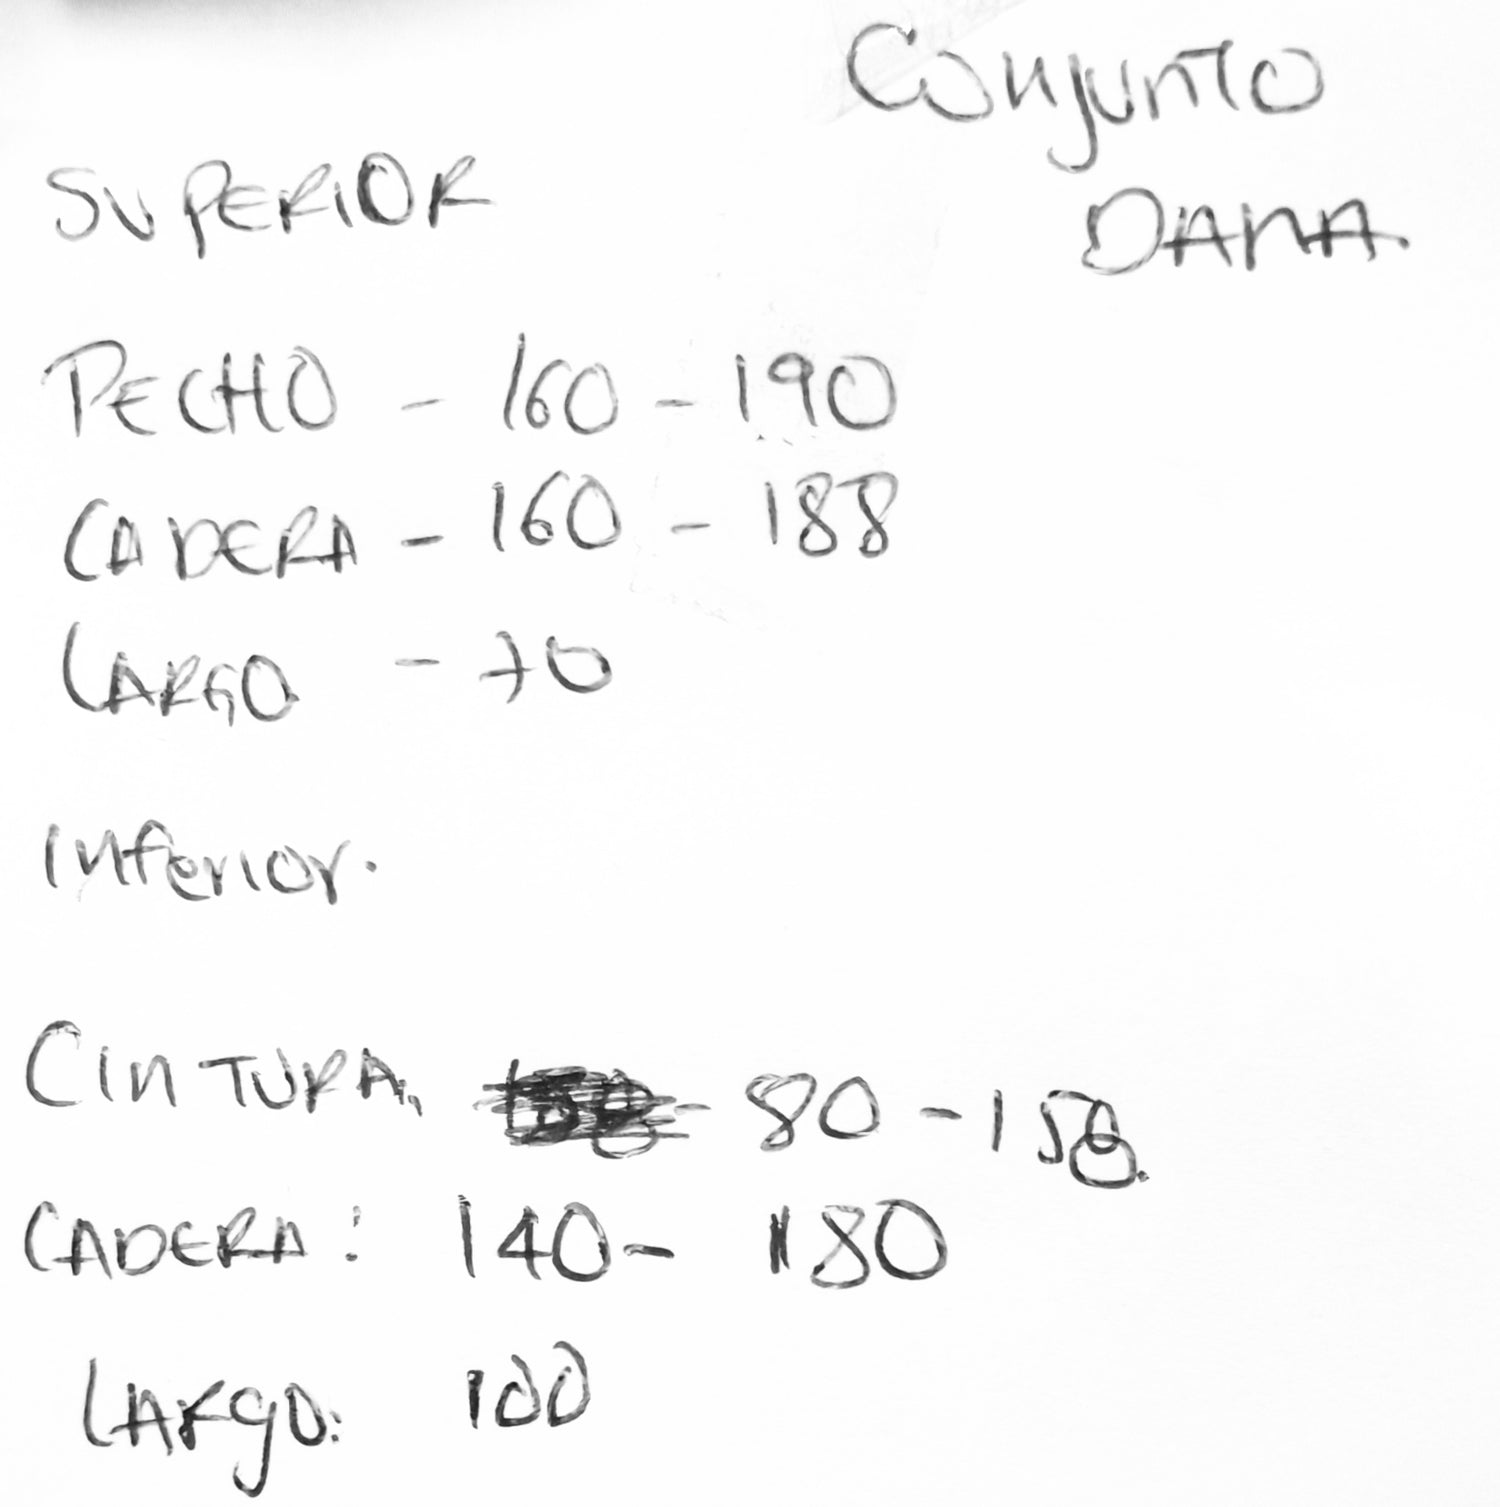 Conjunto
DAMA.
SUPERIOR
PECHO - 160 - 190
CADERA - 160 - 188
LARGO - 70
Inferior.
CINTURA. - 80 - 158.
CADERA: 140 - 180
LARGO: 100